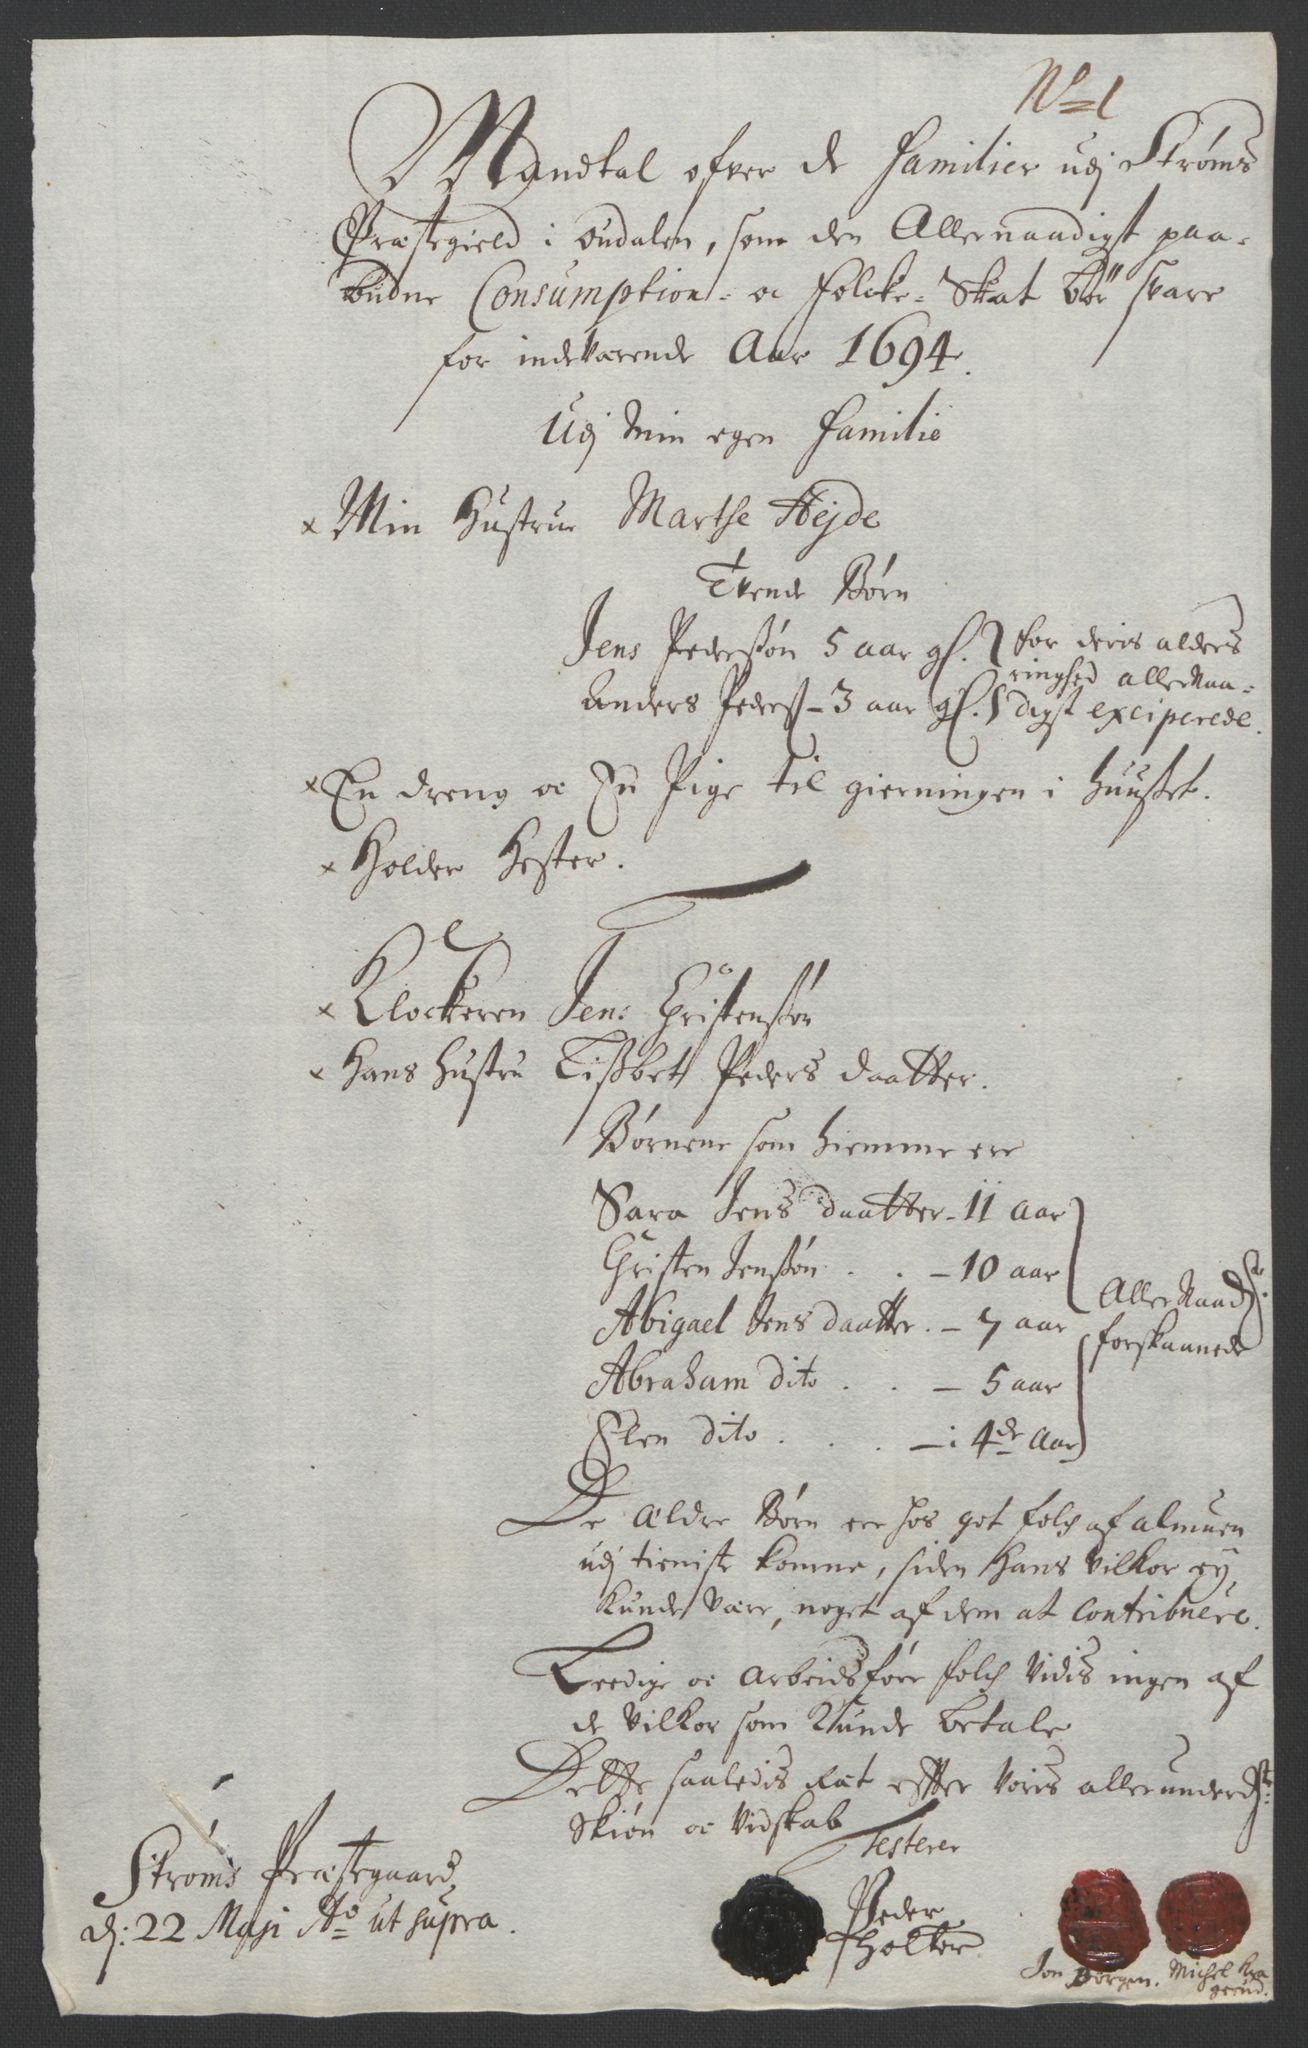 No 1
Mandtal ofver de Familier udj Strøms
Præstegield i Oudalen, som den Allernaadigst paa-
budne Consumption- oc Folcke-Skat bør svare
for indeværende Aar 1694.
Udj Min egen Familie
× Min Hustrue Marthe Hejde
Tvende Børn
Jens Pederssøn 5 aar gl. } for deris alders
ringhed allernaa-
Anders Pederss - 3 aar gl. } digst exciperede.
× En dreng oc En Pige til gierningen i huusset.
× Holder Hester.
× Klockeren Jens Christenssøn
× Hans hustru Lissbet Peders daatter.
Børnene som hiemme ere
Sara Jens daatter - 11 aar
Christen Jenssøn . . - 10 aar
AllerNaadste
Abigael Jens daatter. - 7 aar
forskaanede
Abraham dito . . - 5 aar
Elen dito . . . - i 4de Aar
De Ældre Børn ere hos got folch af almuen
udj tieniste komne, siden Hans Vilkor ey
kunde være, noget af dem at contribuere.
Leedige oc arbeidsføre folch Vidis ingen af
de Vilkor som Kunde betale
Dette saaledis rät efter Voris allerunderdste
Skiøn oc Vidskab
Testerer
Strøms Præstegaard,
d: 22 Maji Ao ut supra.
Peder
Holter
Jon Borgen. Michel Kra
gerud.